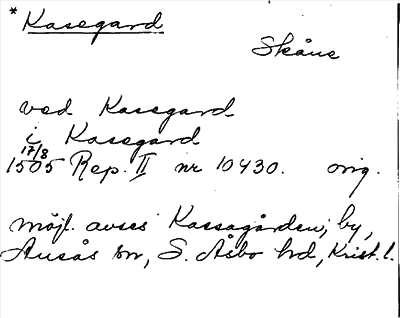 *Kasegard
Skåne
ved Kasegard
i Kasegard
17/8
1505 Rep. II nr 10430. orig.
möjl. avses Kassagården; by,
Ausås sn, S. Åsbo hd, Krist. l.